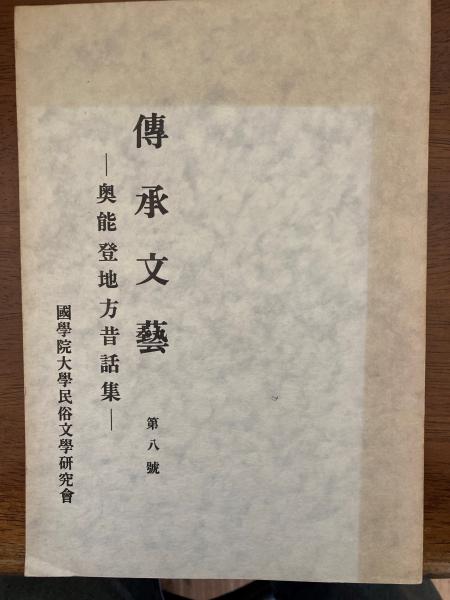 傳承文藝 第八號
―奥能登地方昔話集―
國學院大學民俗文學研究會